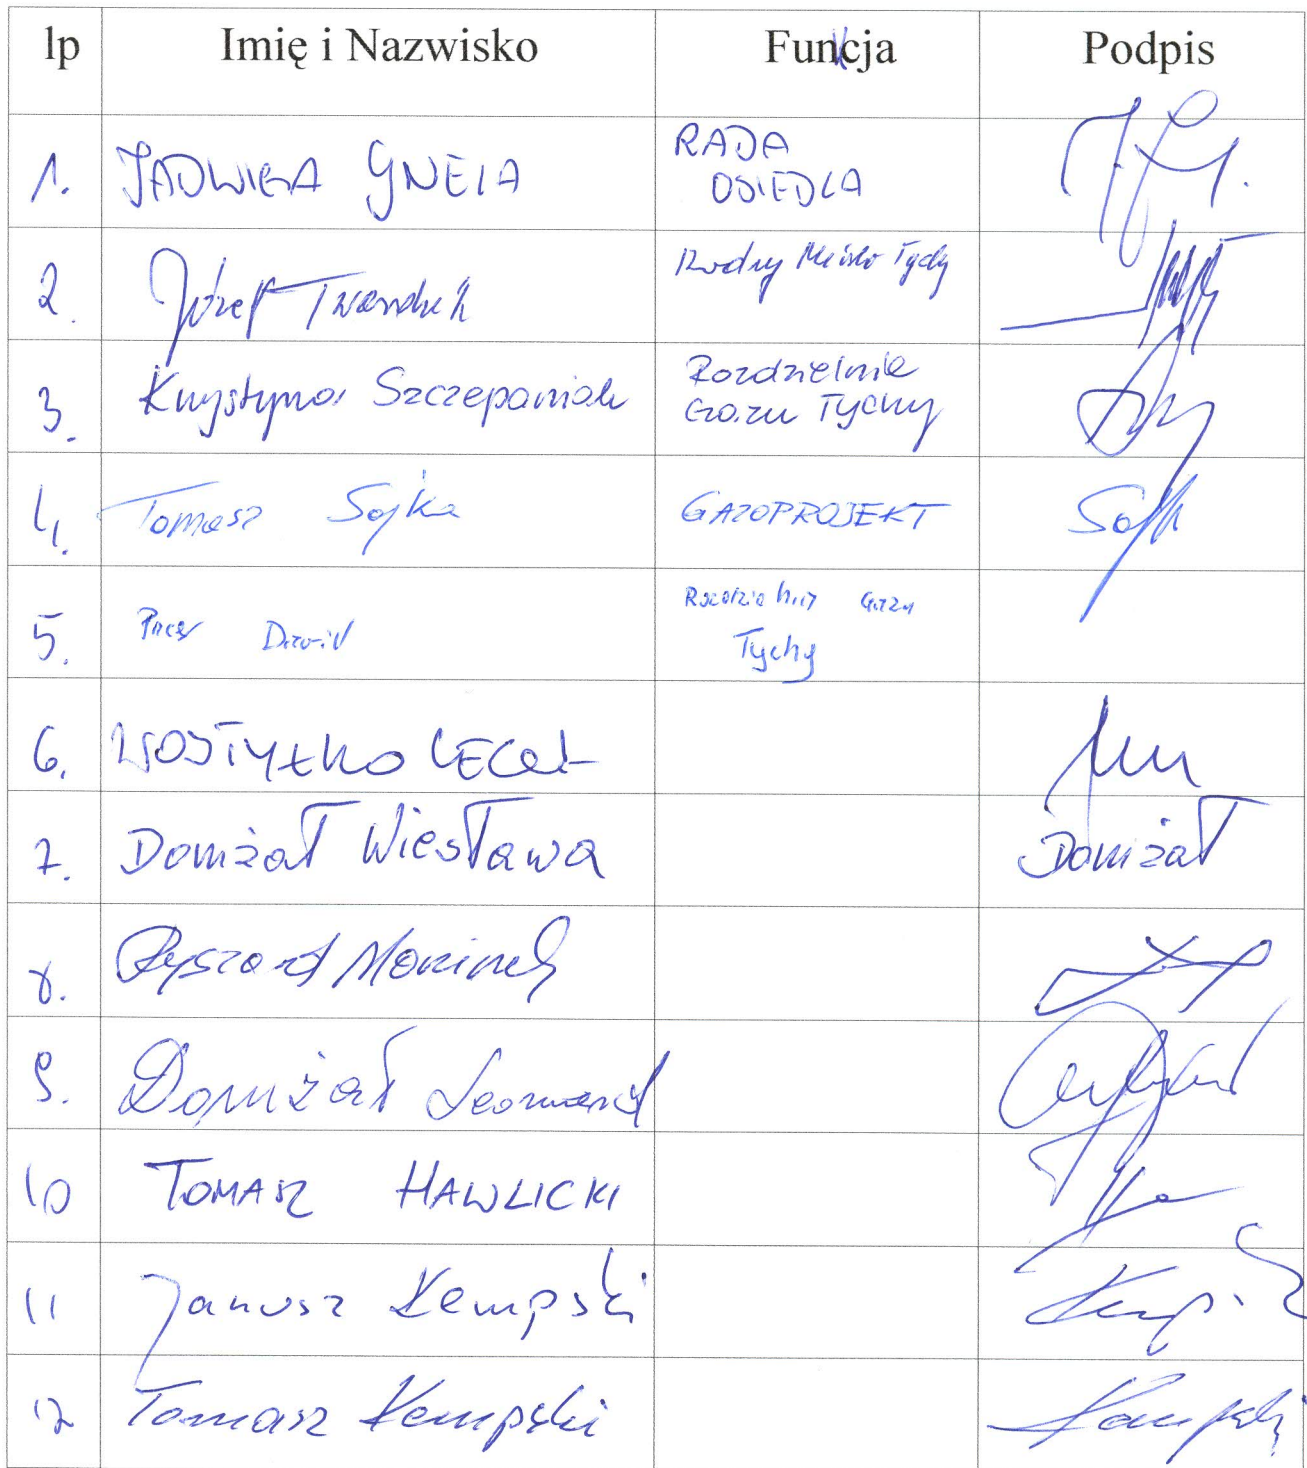 lp Imię i Nazwisko Funkcja Podpis
1. JADWIGA GNELA RADA
OSIEDLA
2. Józef Twardzik Radny Miasta Tychy
3. Krystyna Szczepaniak Rozdzielnia
Gazu Tychy
4. Tomasz Sojka GAZOPROJEKT
5. Dawid Rozdzielnia Gazu
Tychy
6. WOJTYŁKO
7. Domżał Wiesława Domżał
8. Ryszard
9. Domżał Leonard
10 TOMASZ HAWLICKI
11 Janusz Kempski
12 Tomasz Kempski Kempski